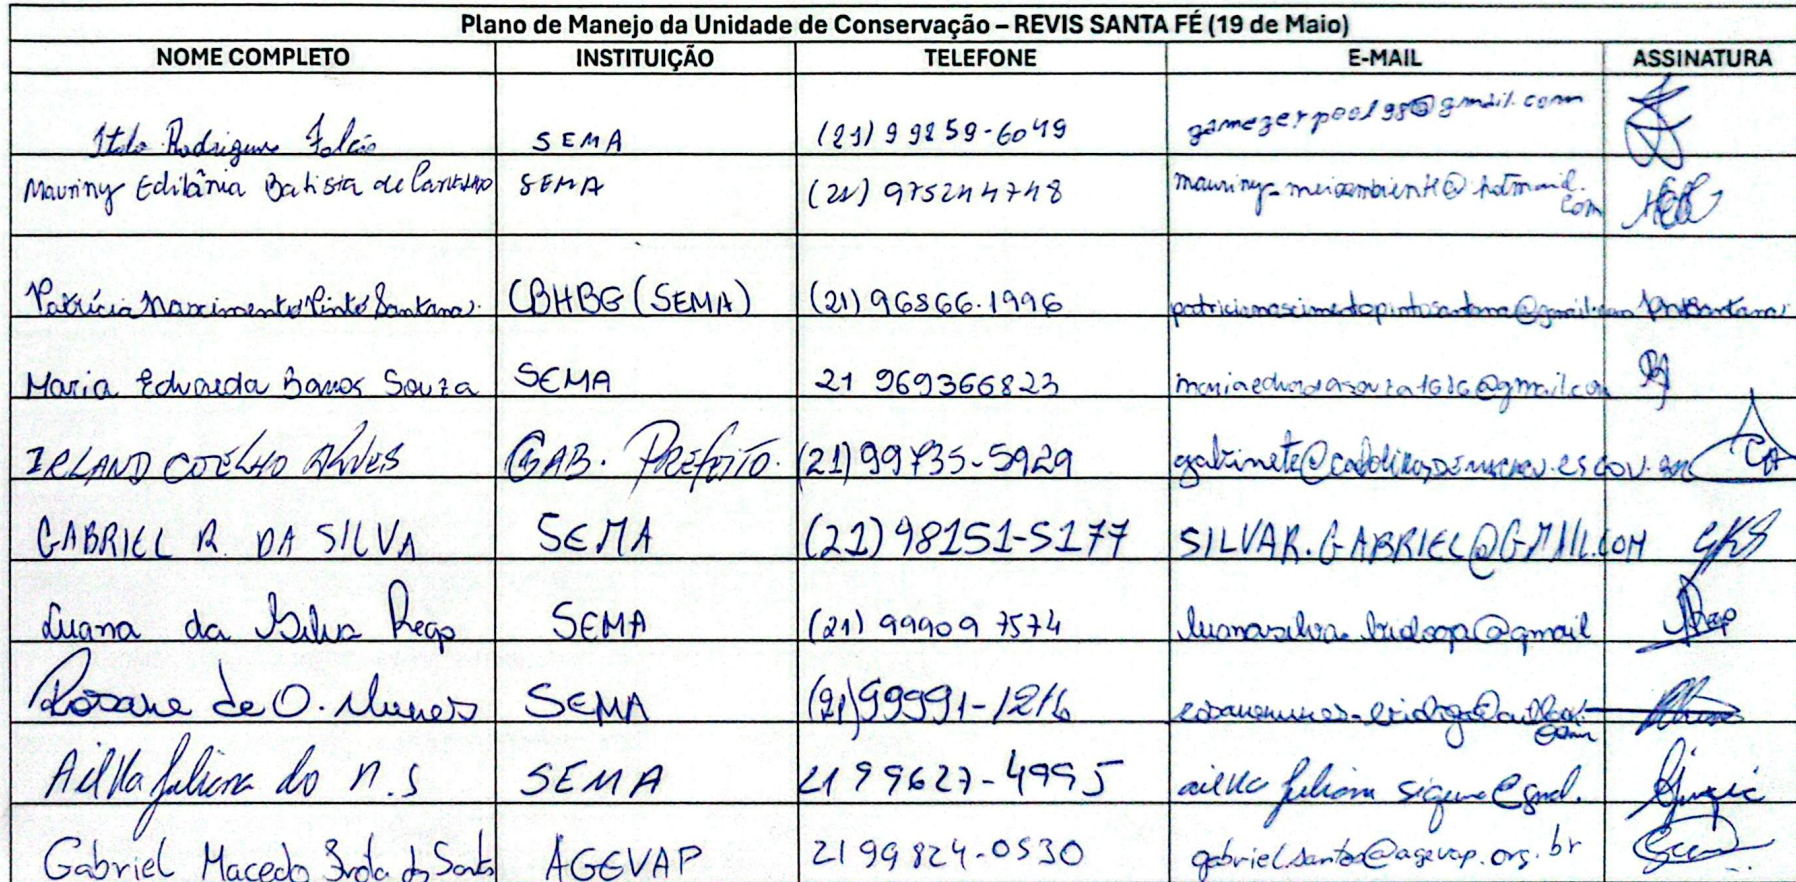 Plano de Manejo da Unidade de Conservação – REVIS SANTA FÉ (19 de Maio)
NOME COMPLETO INSTITUIÇÃO TELEFONE E-MAIL ASSINATURA
Italo Rodrigues Falcão SEMA (21) 99859-6049 gamezerpool98@gmail.com
Mauriny Edilânia Batista de Carvalho SEMA (21) 975244748 mauriny-meioambiente@hotmail.
com
Patrícia Nascimento Pinto Santana. CBHBG (SEMA) (21) 96866.1996 patricianascimentopintosantana@gmail.com PNPSantana
Maria Eduarda Barros Souza SEMA 21 969366823 mariaeduardasouza1616@gmail.com
IRLAND COELHO ALVES GAB. PREFEITO. (21) 99735-5929
GABRIEL R. DA SILVA SEMA (21) 98151-5177 SILVAR.GABRIEL@GMAIL.COM GRS
Luana da Silva Rego SEMA (21) 99909 7574 luanasilva.biologa@gmail Rego
Rosane de O. Nunes SEMA (21) 99991-1216 rosanenunes-biologa@outlook.
com
Ailka Juliana do N.S SEMA 21 99627-4995
Gabriel Macedo Frota dos Santos AGEVAP 21 99824-0530 gabriel.santos@agevap.org.br